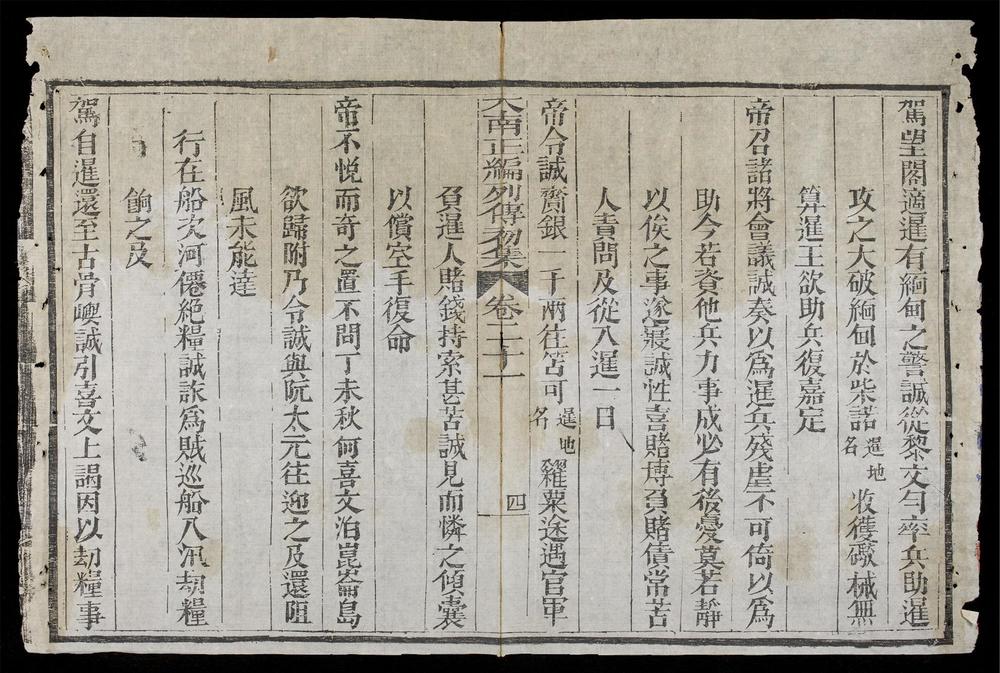 駕望閣適暹有緬甸之警誠從黎文匀率兵助暹
攻之大破緬甸於柴諾暹地名收獲礮械無
算暹王欲助兵復嘉定
帝召諸將會議誠奏以爲暹兵殘虐不可倚以爲
助今若資他兵力事成必有後憂莫若靜
以俟之事遂寢誠性喜賭博負賭債常苦
人責問及從入暹一日
帝令誠齎銀一千兩往笞可暹地名糴粟途遇官軍
大南正編列傳初集 卷二十一 四
負暹人賭錢持索甚苦誠見而憐之傾囊
以償空手復命
帝不悅而奇之置不問丁未秋何喜文泊崑崙島
欲歸附乃令誠與阮太元往迎之及還阻
風未能達
行在船次河僊絶糧誠詐爲賊巡船入汛刼糧
餉之及
駕自暹還至古骨嶼誠引喜文上謁因以刼糧事